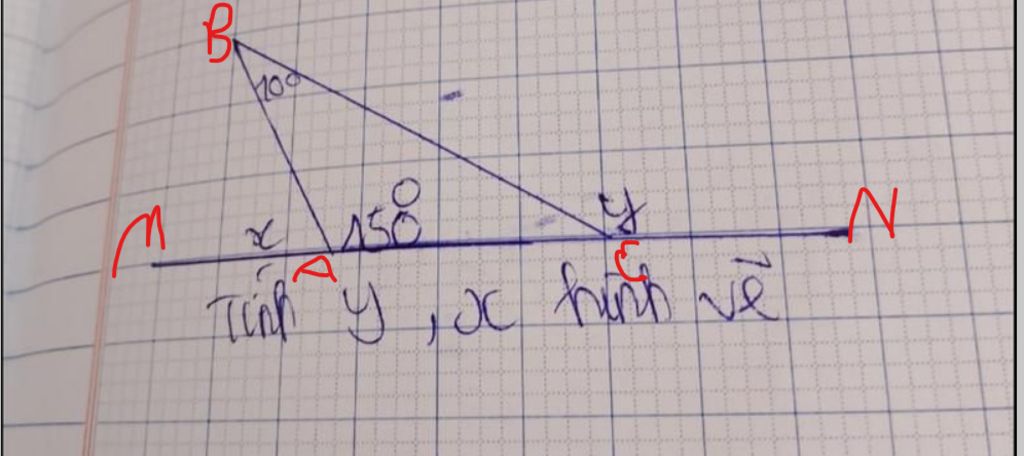 B
10°
M x A 150° y C N
Tính y, x hình vẽ